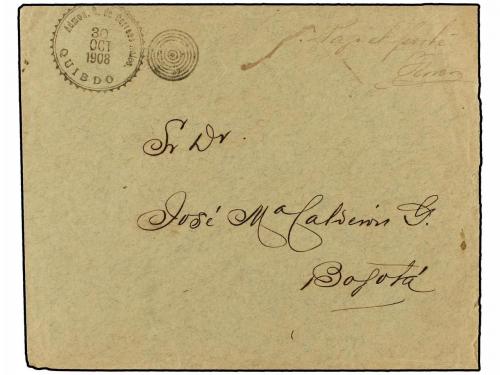 Admon. de Correos
30
OCT
1908
QUIBDO
Pagó el porte
Sr Dr.
José Mª Calderón G.
Bogotá